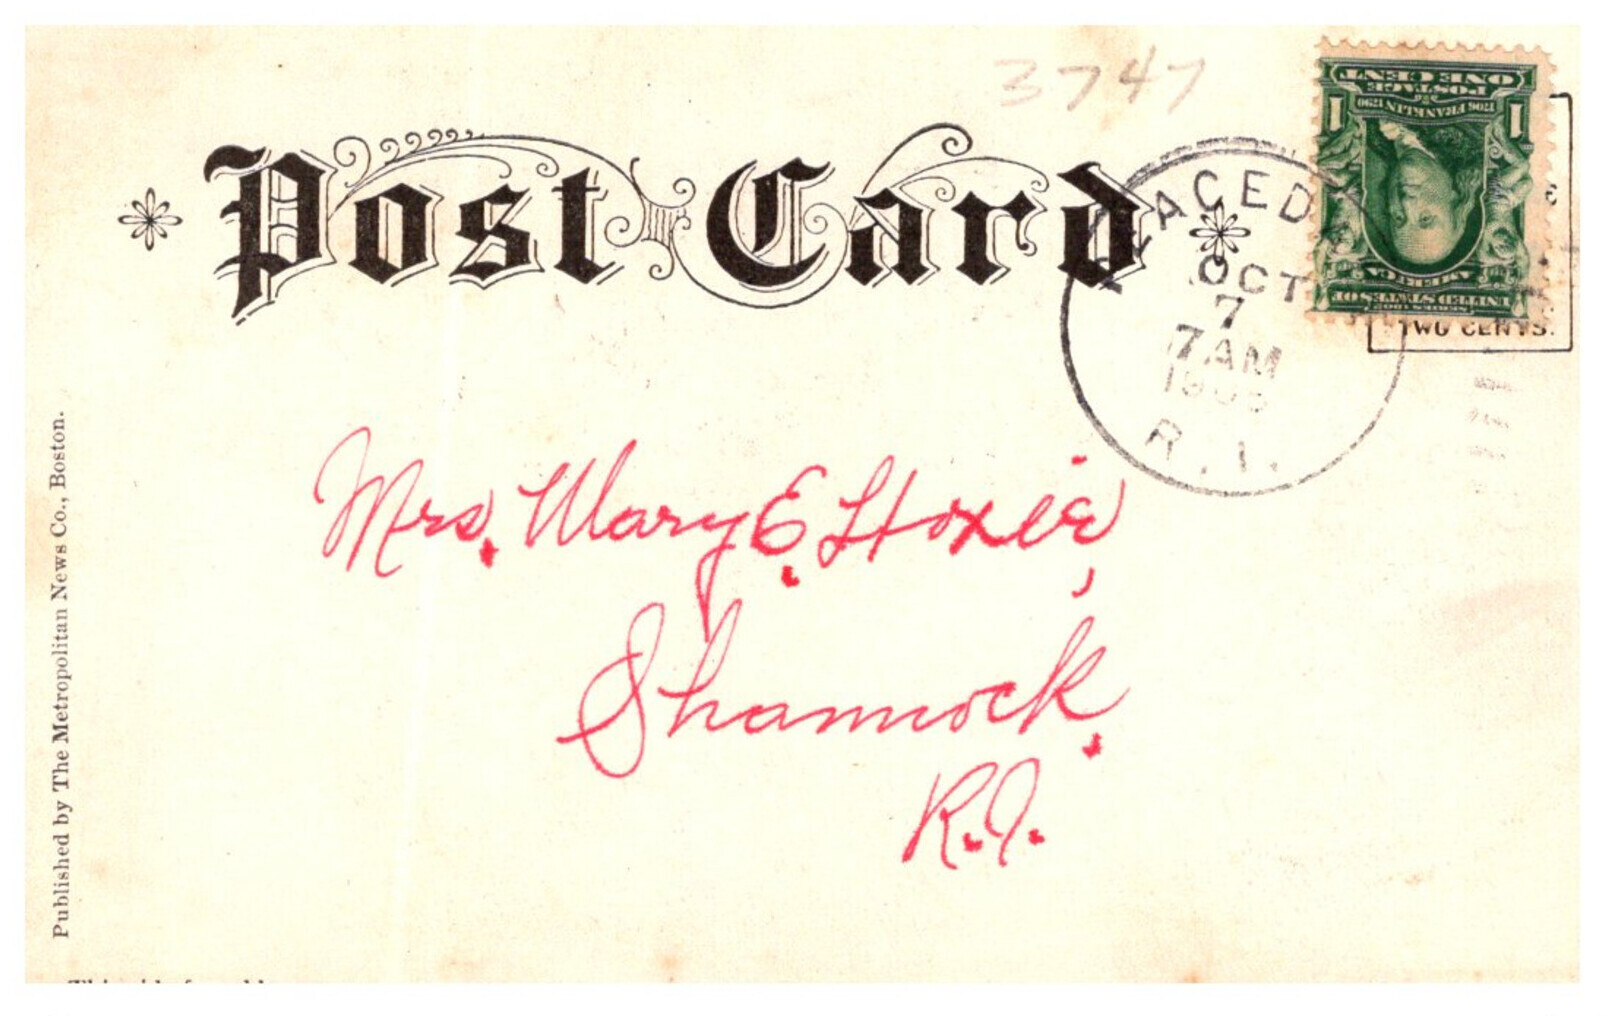 3747
Post Card
OCT
7
7 AM
R. I.
ONE CENT
POSTAGE
1706 FRANKLIN 1790
1 1
AMERICA
UNITED STATES OF
SERIES 1902
TWO CENTS.
Mrs. Mary E. Hoxie,
Shannock.
R.I.
Published by The Metropolitan News Co., Boston.